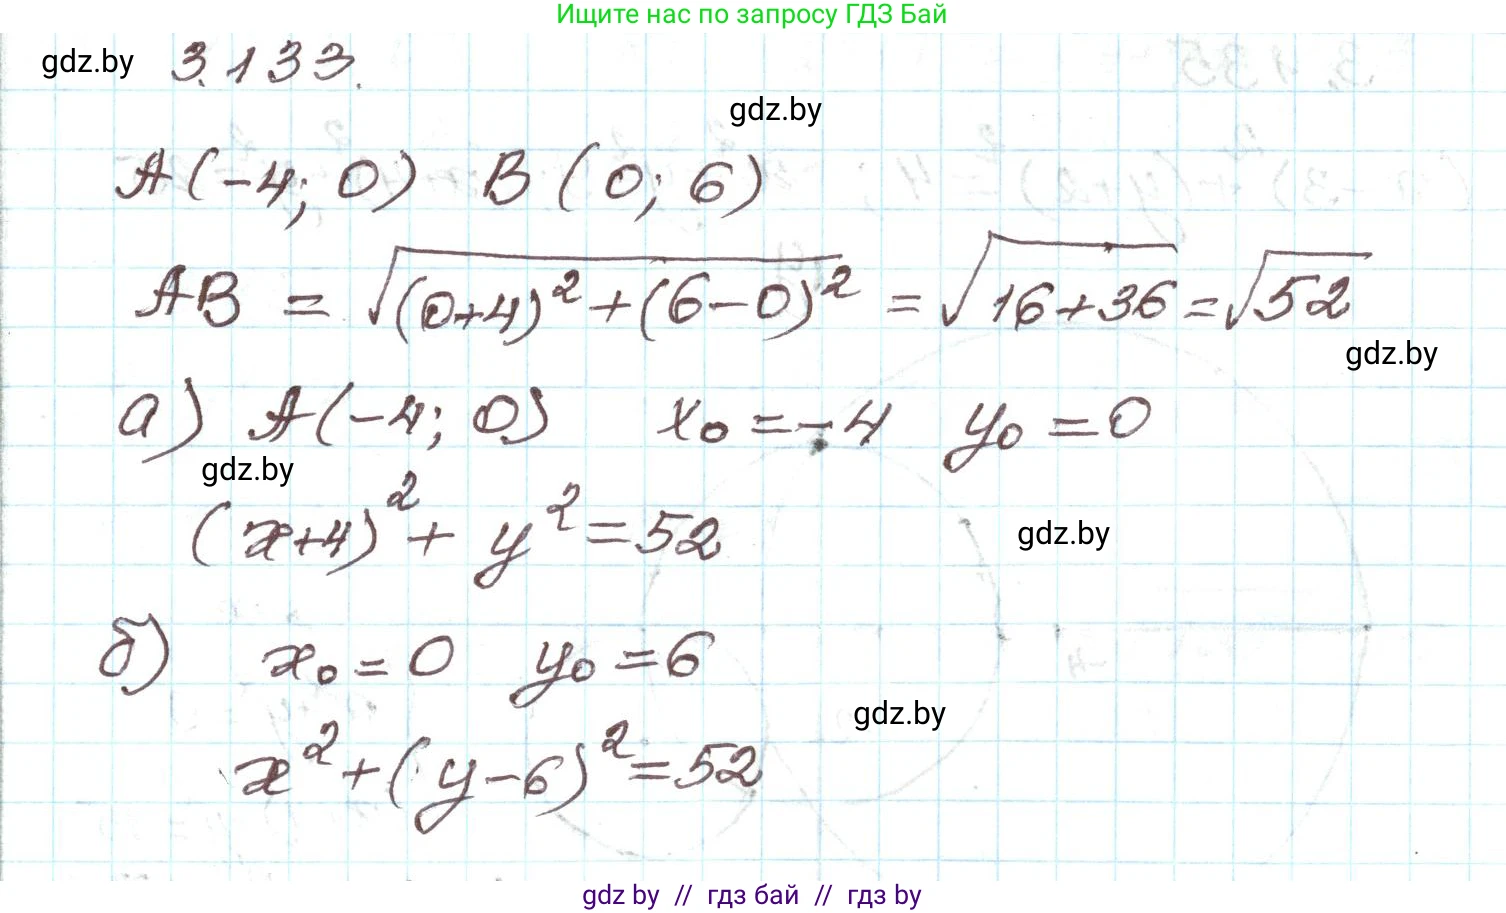 Ищите нас по запросу ГДЗ Бай
gdz.by 3.133.
gdz.by
A(-4; 0) B (0; 6)
AB = √((0+4)² + (6-0)²) = √(16+36) = √52
gdz.by
а) A(-4; 0) x₀ = -4 y₀ = 0
gdz.by
(x+4)² + y² = 52
gdz.by
б) x₀ = 0 y₀ = 6
gdz.by
x² + (y-6)² = 52
gdz by // гдз бай // гдз by